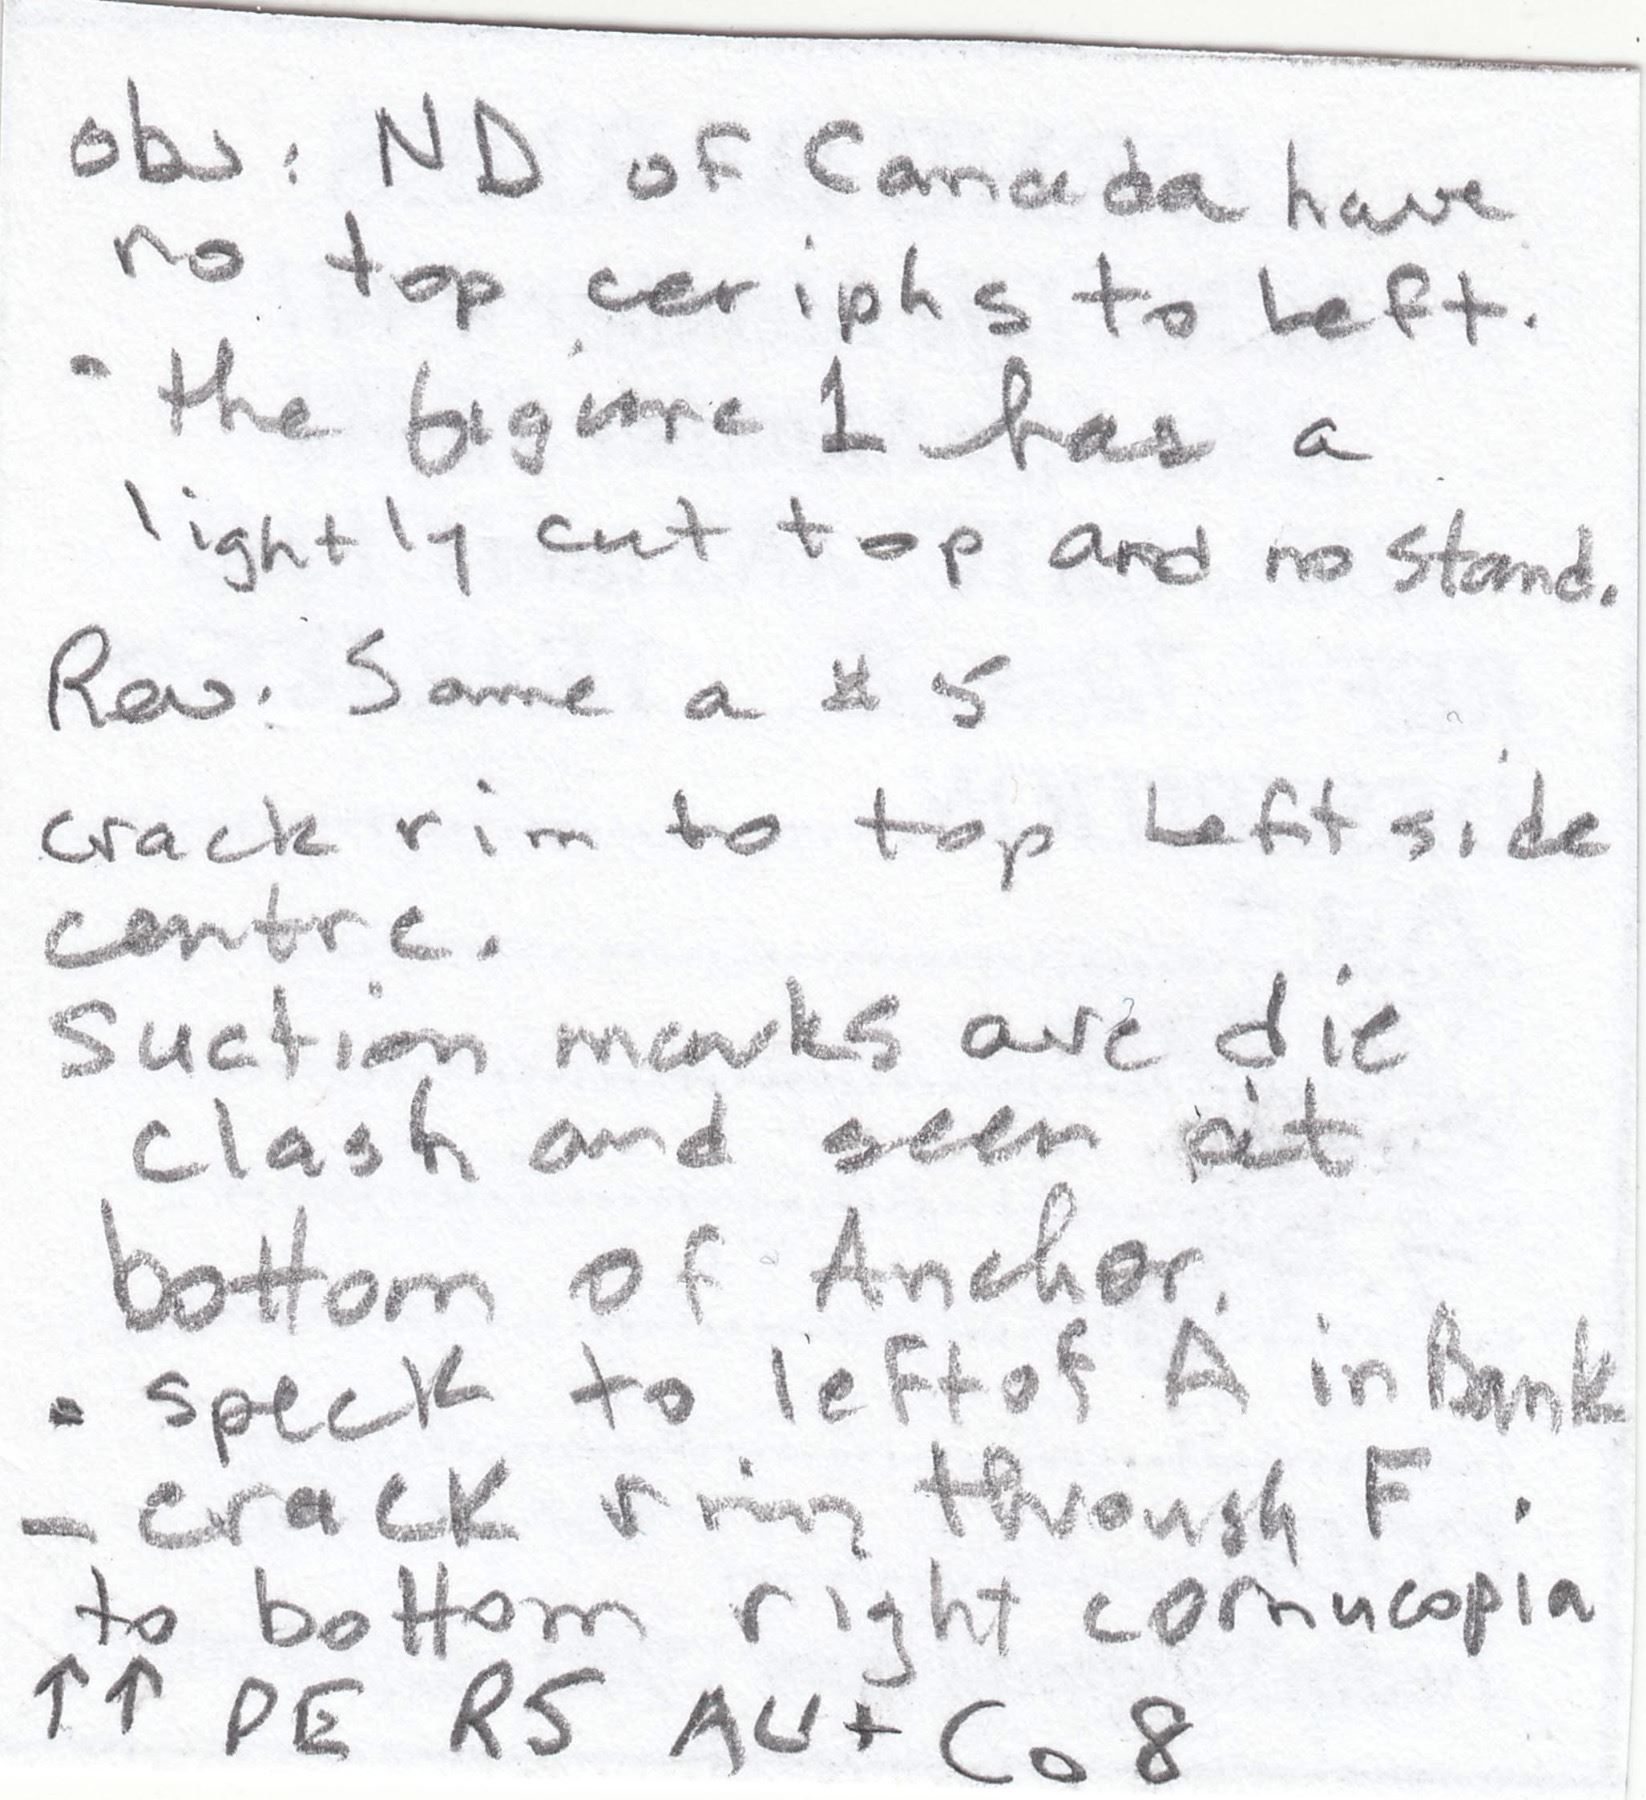 obv: ND of Canada have
no top ceriphs to left.
• the figure 1 has a
lightly cut top and no stand.
Rev: Same a # 5
crack rim to top left side
centre.
Suction marks are die
clash and seen at
bottom of Anchor.
• speck to left of A in Bank
- crack rim through F
to bottom right cornucopia
↑↑ PE R5 AU+ Co 8